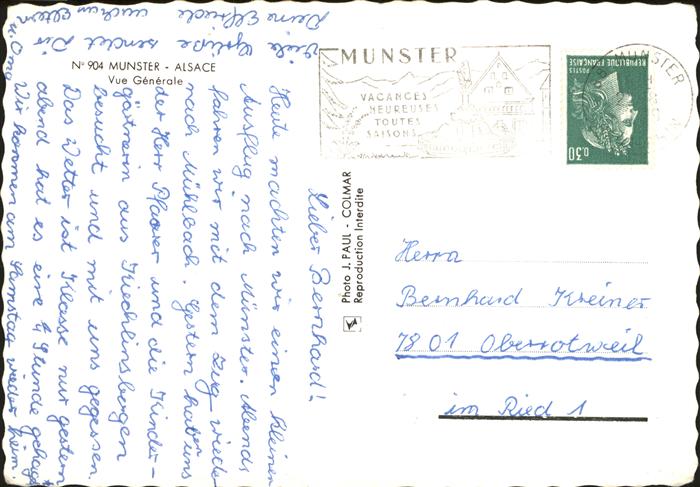 N° 904 MUNSTER - ALSACE
Vue Générale
MUNSTER
VACANCES
HEUREUSES
TOUTES
SAISONS
MUNSTER
POSTES
REPUBLIQUE FRANÇAISE
0.30
Photo J. PAUL - COLMAR
Reproduction Interdite
Lieber Bernhard!
Heute machten wir einen kleinen
Ausflug nach Münster. Abends
fahren wir mit dem Zug wieder
nach Mühlbach. Gestern hat uns
der Herr Pfarrer und die Kinder-
gärtnerin aus Kiechlinsbergen
besucht und mit uns gegessen.
Das Wetter ist Klasse nur gestern
abend hat es eine 1/4 Stunde gehagelt
Wir kommen am Samstag wieder heim.
Viele Grüße sendet Dir
Deine Elfriede
auch an Eltern
u. Oma
Herrn
Bernhard Kreiner
7801 Oberrotweil
im Ried 1